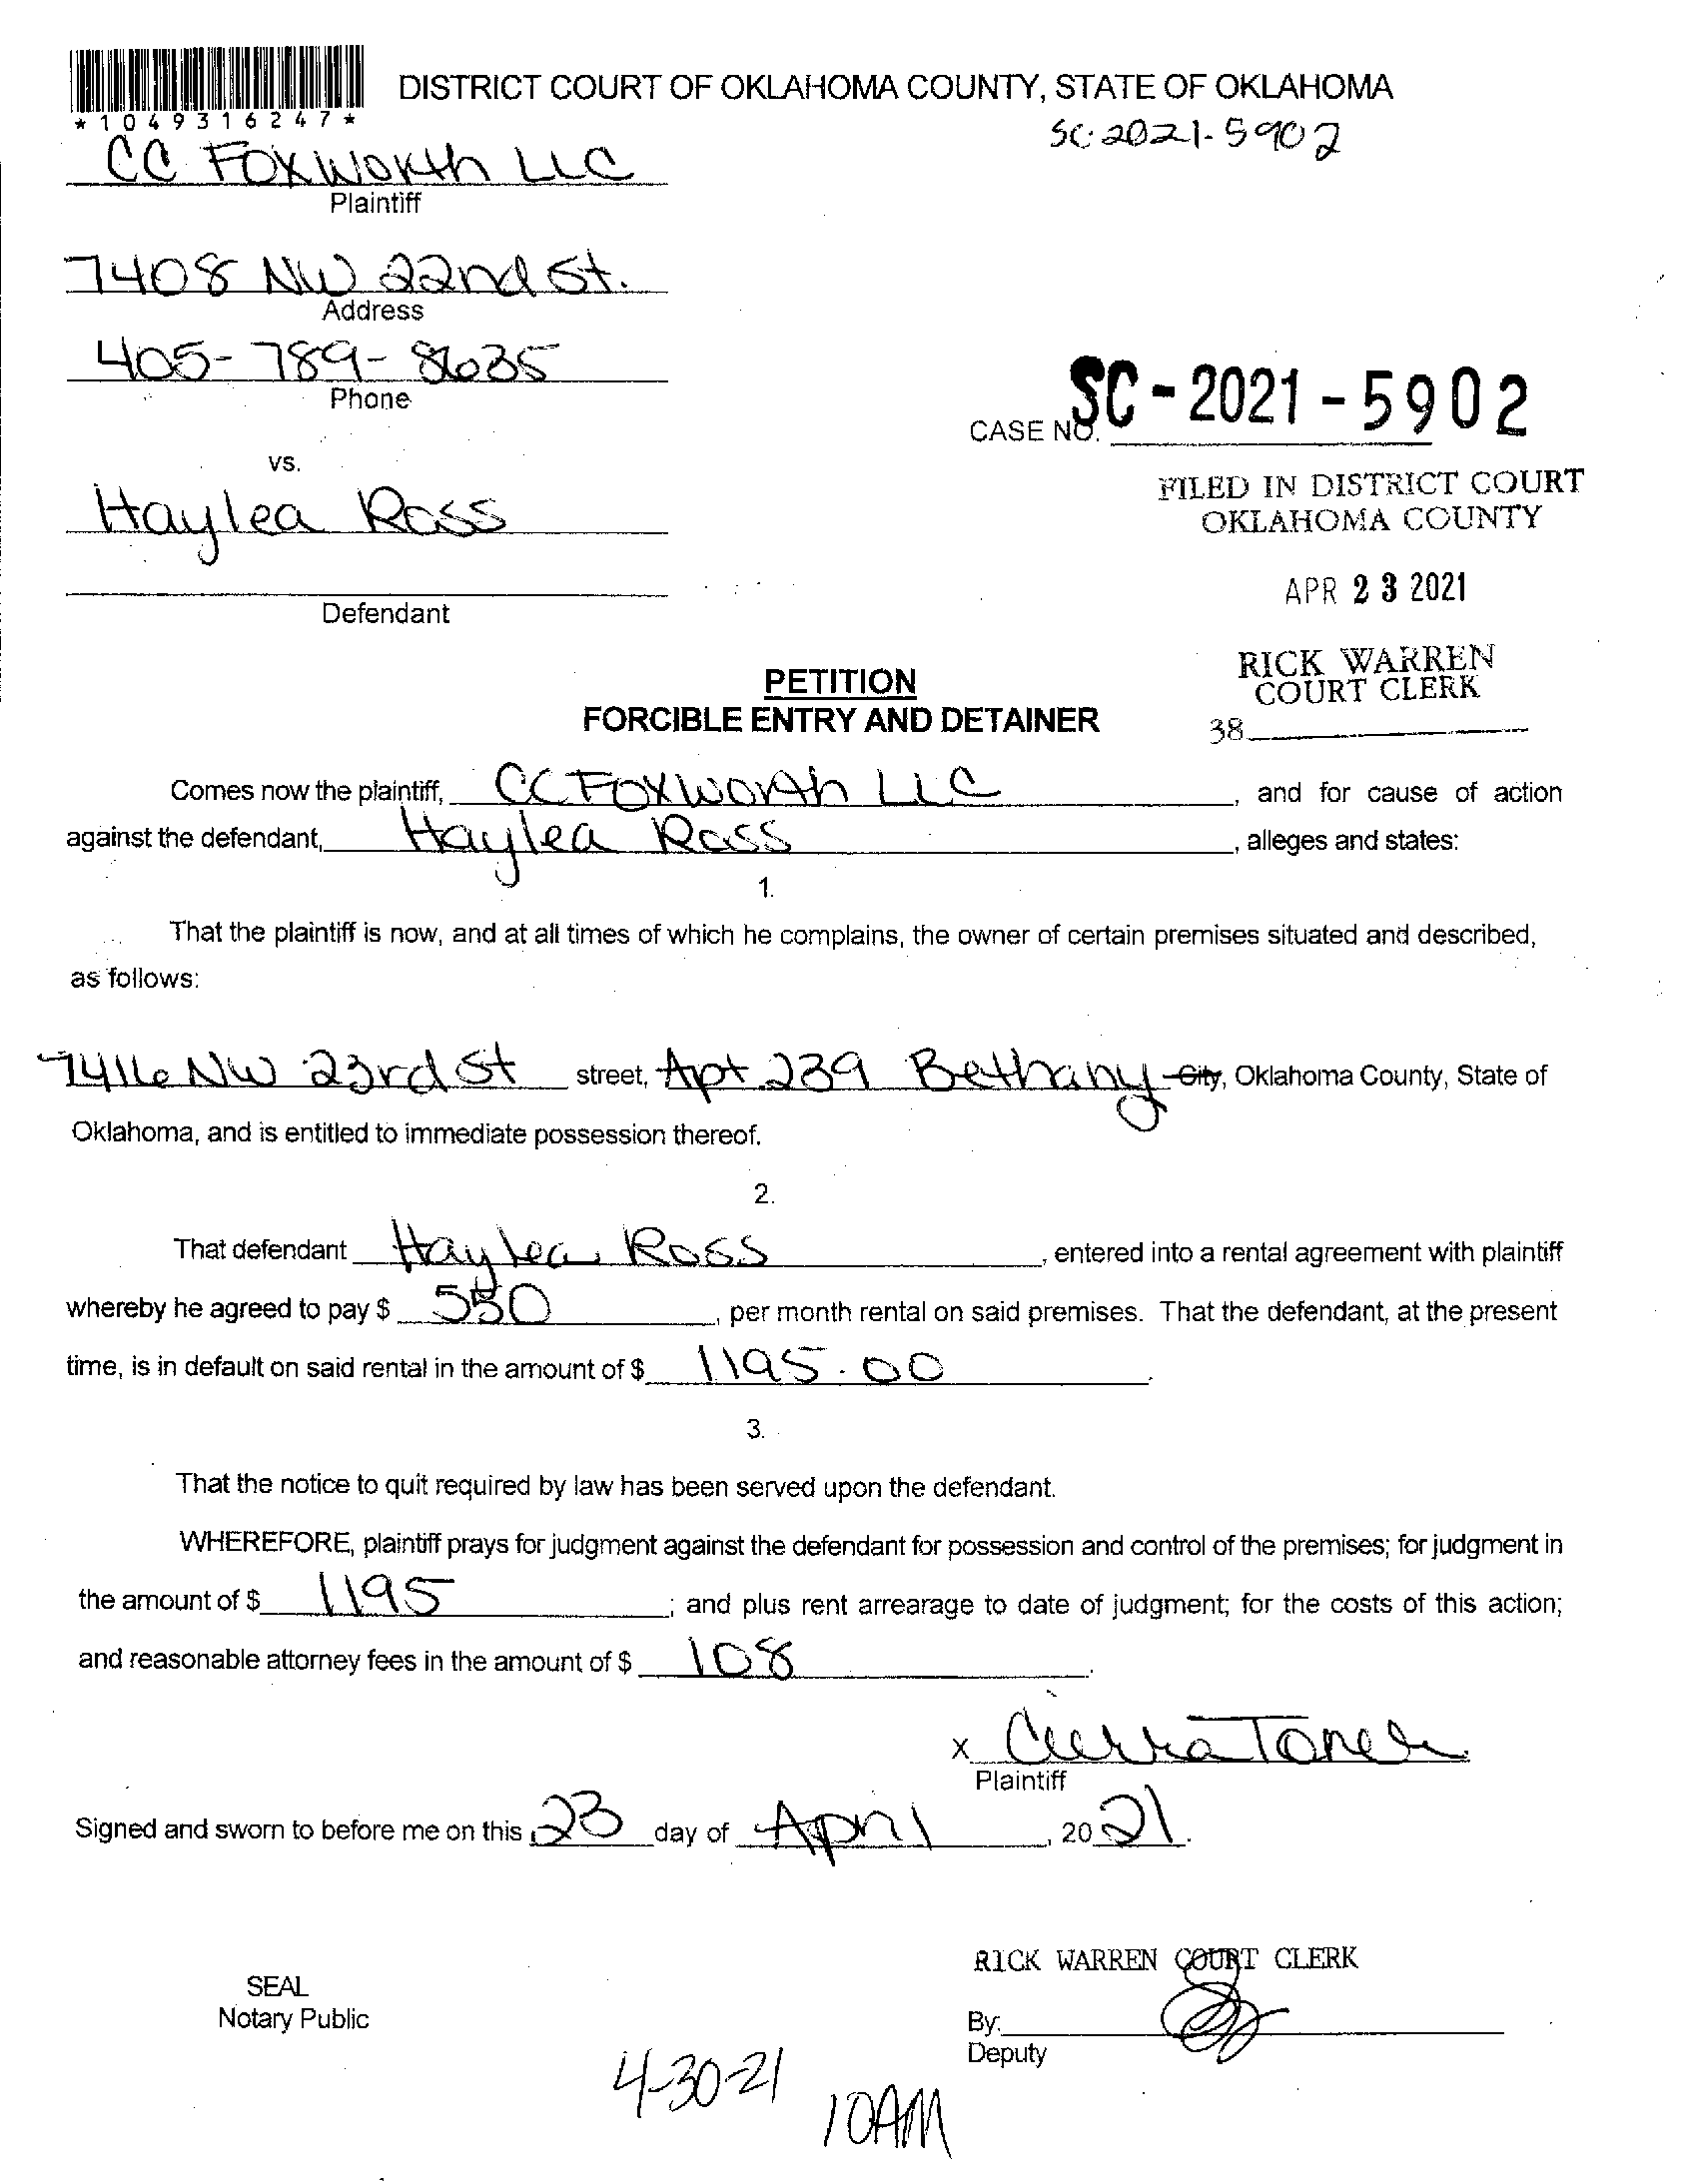 DISTRICT COURT OF OKLAHOMA COUNTY, STATE OF OKLAHOMA
*1049316247*
SC-2021-5902
CC Foxworth LLC
Plaintiff
7408 NW 22nd St.
Address
405-789-8635
Phone
SC-2021-5902
CASE NO.
vs.
FILED IN DISTRICT COURT
OKLAHOMA COUNTY
Haylea Ross
APR 23 2021
Defendant
RICK WARREN
COURT CLERK
38
PETITION
FORCIBLE ENTRY AND DETAINER
Comes now the plaintiff, CC Foxworth LLC, and for cause of action
against the defendant, Haylea Ross, alleges and states:
1.
That the plaintiff is now, and at all times of which he complains, the owner of certain premises situated and described,
as follows:
7416 NW 23rd St street, Apt 239 Bethany City, Oklahoma County, State of
Oklahoma, and is entitled to immediate possession thereof.
2.
That defendant Haylea Ross, entered into a rental agreement with plaintiff
whereby he agreed to pay $ 550, per month rental on said premises. That the defendant, at the present
time, is in default on said rental in the amount of $ 1195.00.
3.
That the notice to quit required by law has been served upon the defendant.
WHEREFORE, plaintiff prays for judgment against the defendant for possession and control of the premises; for judgment in
the amount of $ 1195; and plus rent arrearage to date of judgment; for the costs of this action;
and reasonable attorney fees in the amount of $ 108.
x Cierra Toner
Plaintiff
Signed and sworn to before me on this 23 day of April, 2021.
RICK WARREN COURT CLERK
SEAL
Notary Public
By:
Deputy
4-30-21
10AM